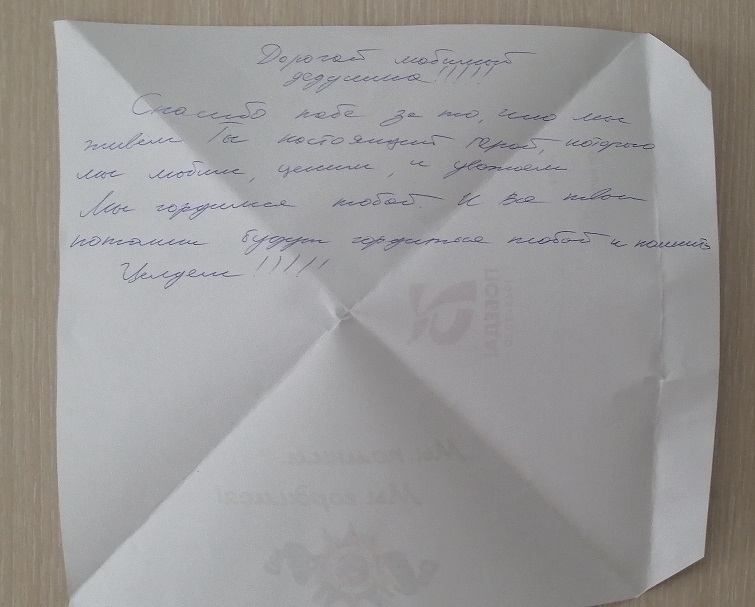 Дорогой любимый
дедушка!!!!!
Спасибо тебе за то, что мы
живем Ты настоящий герой, которого
мы любим, ценим, и уважаем
Мы гордимся тобой. И все твои
потомки будут гордиться тобой и помнить
Целуем!!!!!
ПОБЕДА!
Мы помним
Мы гордимся!